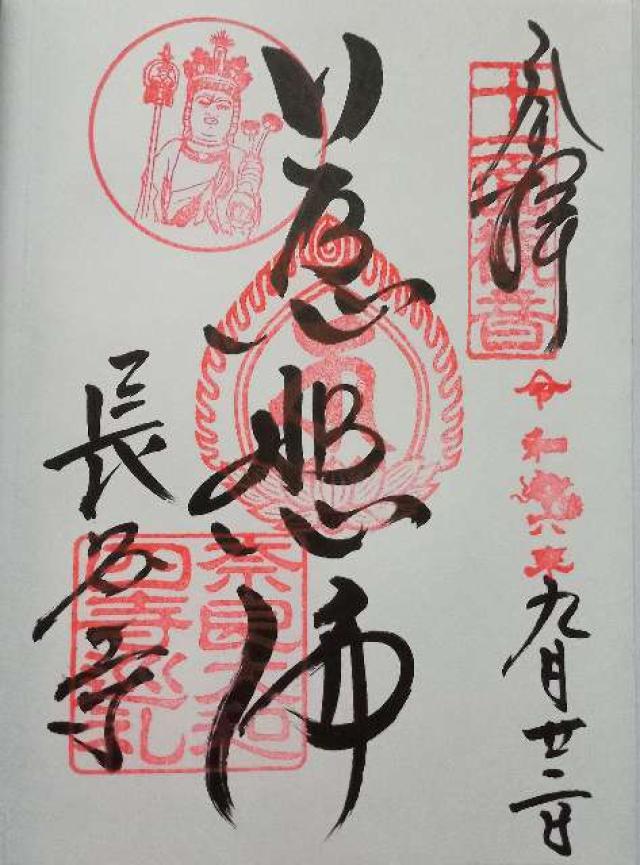 奉拝
十一面観音
令和六年九月廿二日
慈悲佛
長谷寺
奈良大和
四寺巡礼